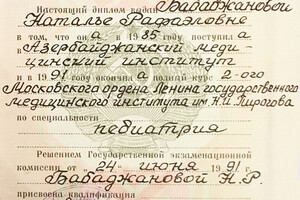 Настоящий диплом выдан Бабаджановой
Наталье Рафаэловне
в том, что он а в 1985 году поступил а
в Азербайджанский меди-
цинский институт
и в 1991 году окончил а полный курс 2-ого
Московского ордена Ленина государственного
медицинского института им. Н.И. Пирогова
по специальности
педиатрия
Решением Государственной экзаменационной
комиссии от "24" июня 1991 г.
Бабаджановой Н.Р.
присвоена квалификация